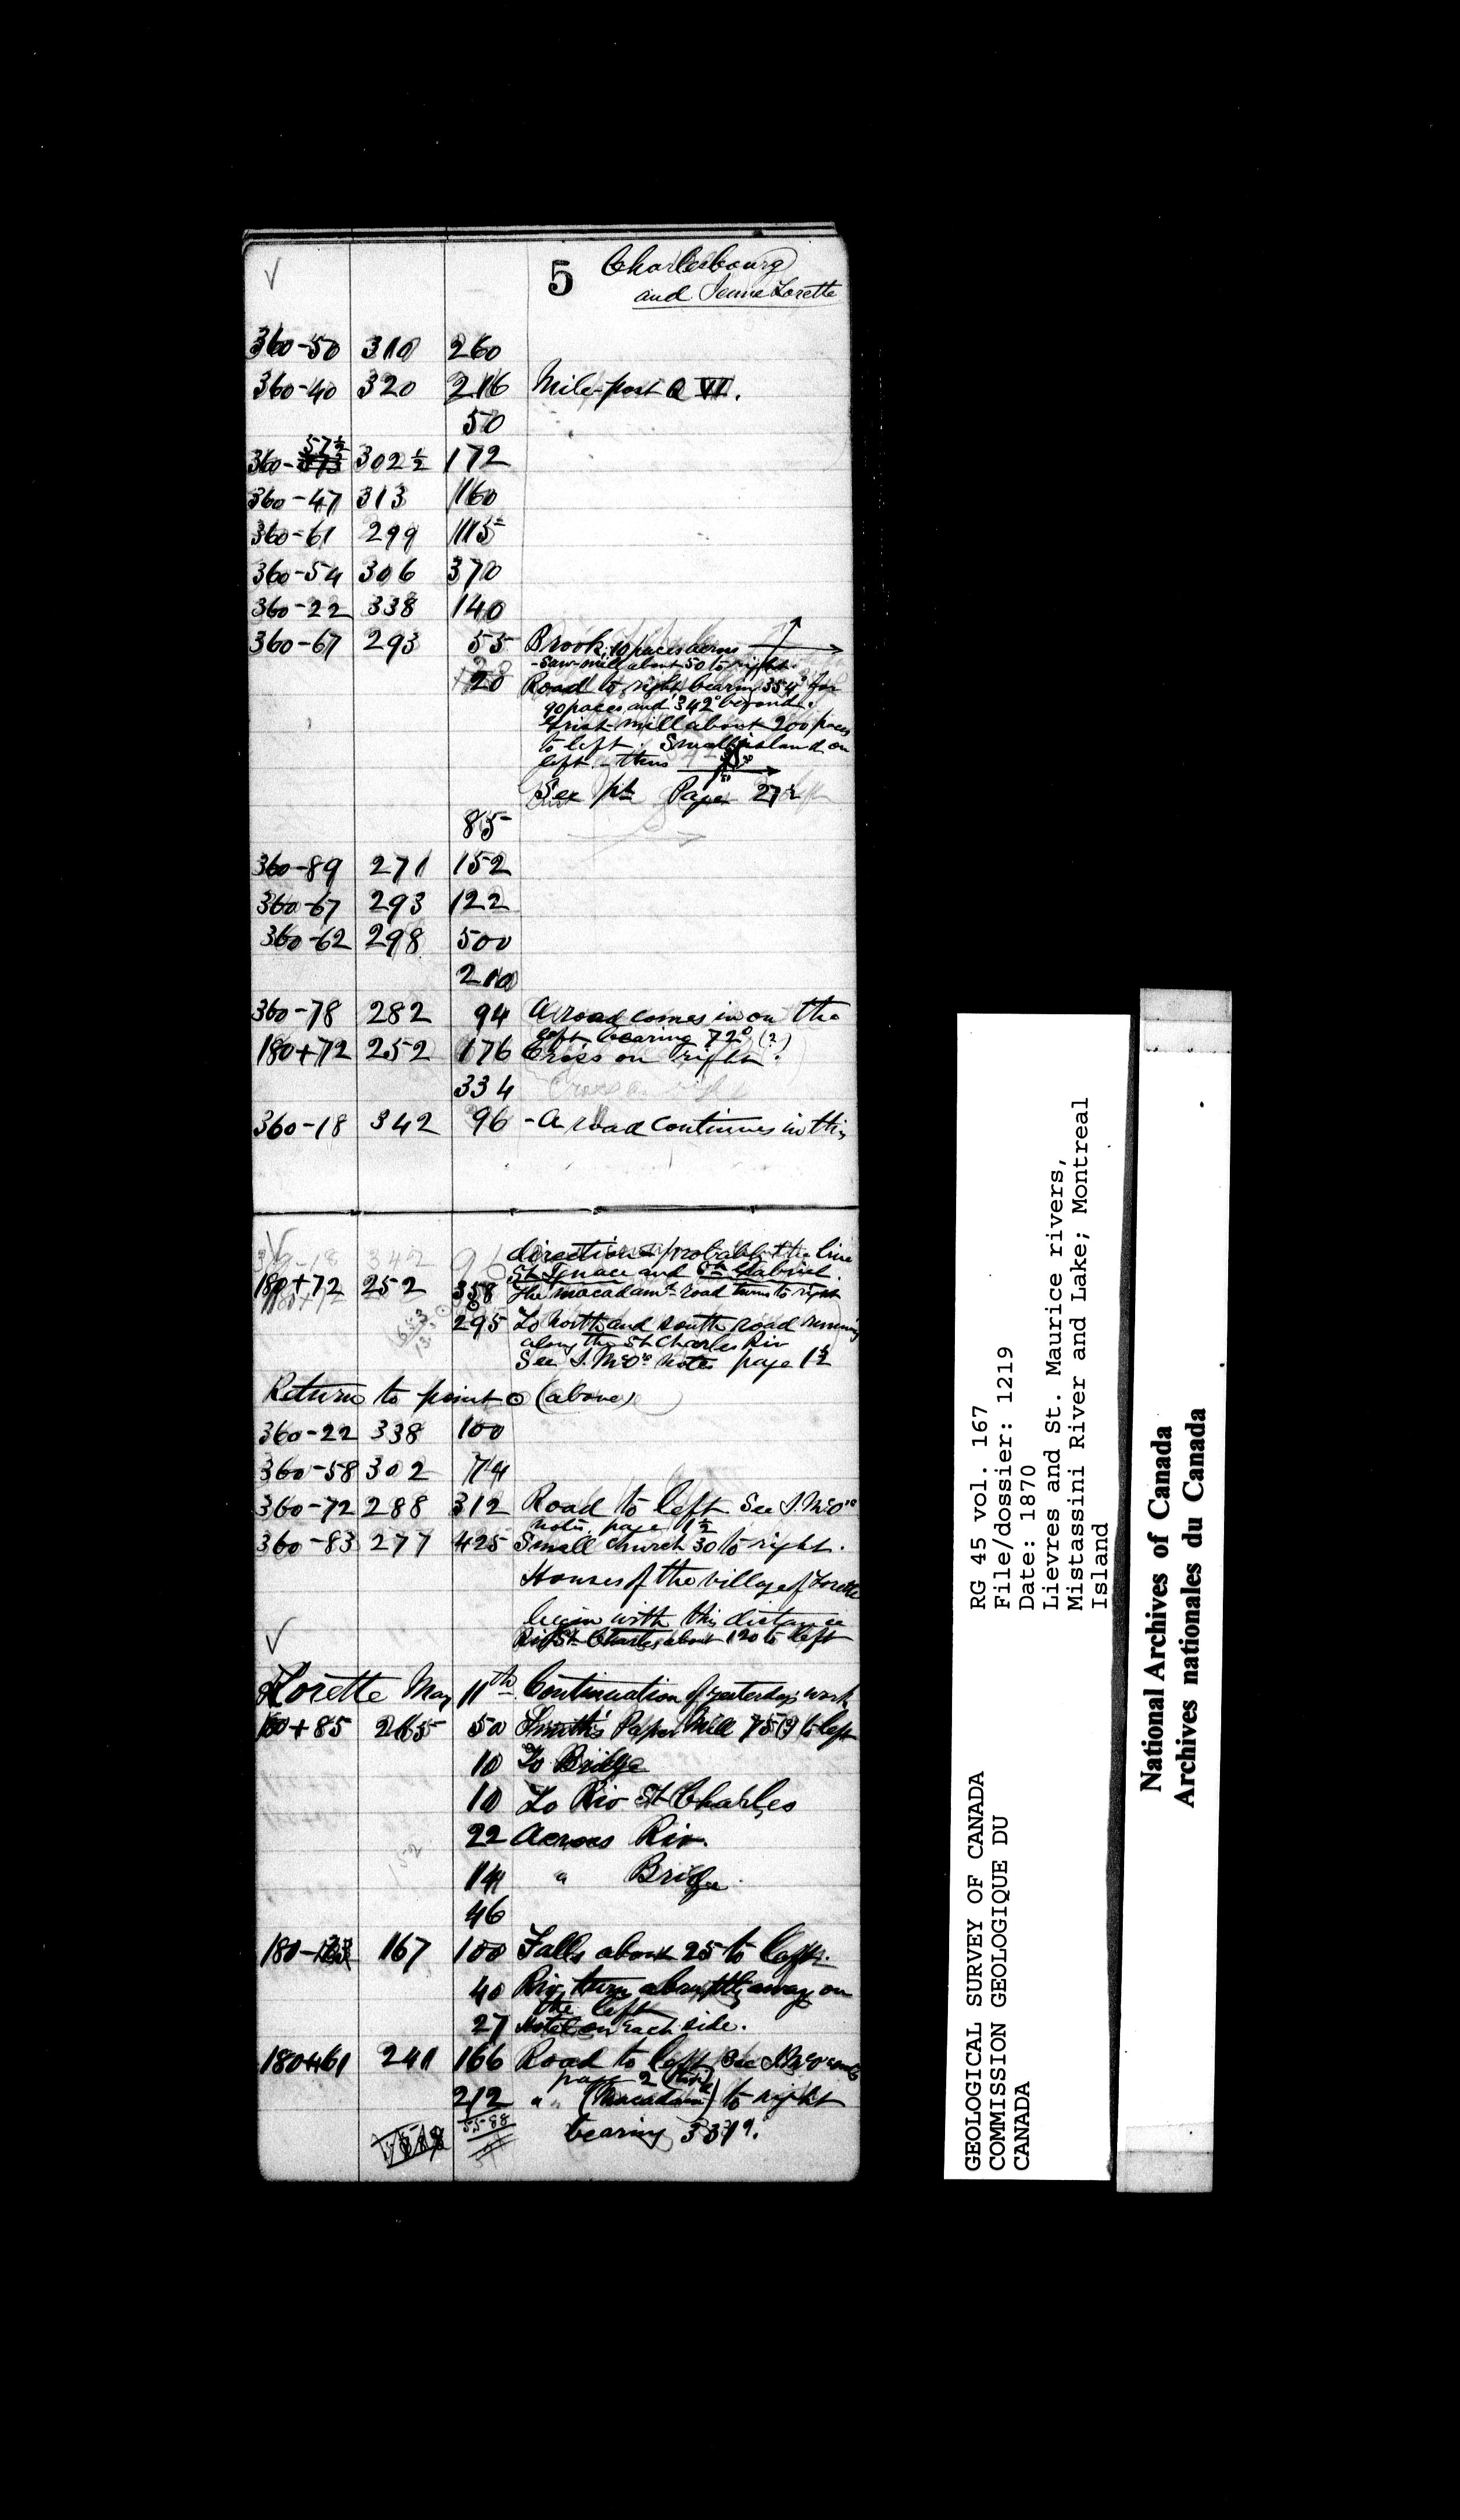 5 Charlesbourg
and Jeune Lorette
360-50 310 260
360-40 320 216 Mile-post Q VI.
50
57½
360- 302½ 172
360-47 313 160
360-61 299 115
360-54 306 370
360-22 338 140
360-67 293 55 Brook, 10 paces across
-Saw-mill about 50 to right.
20 Road to right bearing 354° for
90 paces and 342° beyond.
Grist-mill about 200 paces
to left. Small island on
left - thus
See pt Page 27½
85
360-89 271 152
360-67 293 122
360-62 298 500
210
360-78 282 94 A road comes in on the
left bearing 72° (?)
180+72 252 176 Cross on right.
334 Cross on right
360-18 342 96 -A road continues in this
direction probably the line
St Ignace and St Gabriel.
180+72 252 358 The macadamd road turns to right
295 To north and south road running
along the St Charles Riv
See S. McOs notes page 1½
Return to point ⊙ (above)
360-22 338 100
360-58 302 74
360-72 288 312 Road to left See S. McOs
notes page 1½
360-83 277 425 Small church 30 to right.
Houses of the village of Lorette
begin with this distance
Riv St Charles about 120 to left
Lorette May 11th Continuation of yesterday's work
180+85 265 50 Smith's Paper Mill 75(?) to left
10 To Bridge
10 To Riv St Charles
22 Across Riv.
14 " Bridge
46
180- 167 100 Falls about 25 to left.
40 Riv turns abruptly away on
the left
27 Hotel on each side.
180+61 241 166 Road to left See S. McOs notes
page 2
212 " " (Macadamd) to right
5588 bearing 331°.
GEOLOGICAL SURVEY OF CANADA
COMMISSION GEOLOGIQUE DU
CANADA
RG 45 vol. 167
File/dossier: 1219
Date: 1870
Lievres and St. Maurice rivers,
Mistassini River and Lake; Montreal
Island
National Archives of Canada
Archives nationales du Canada